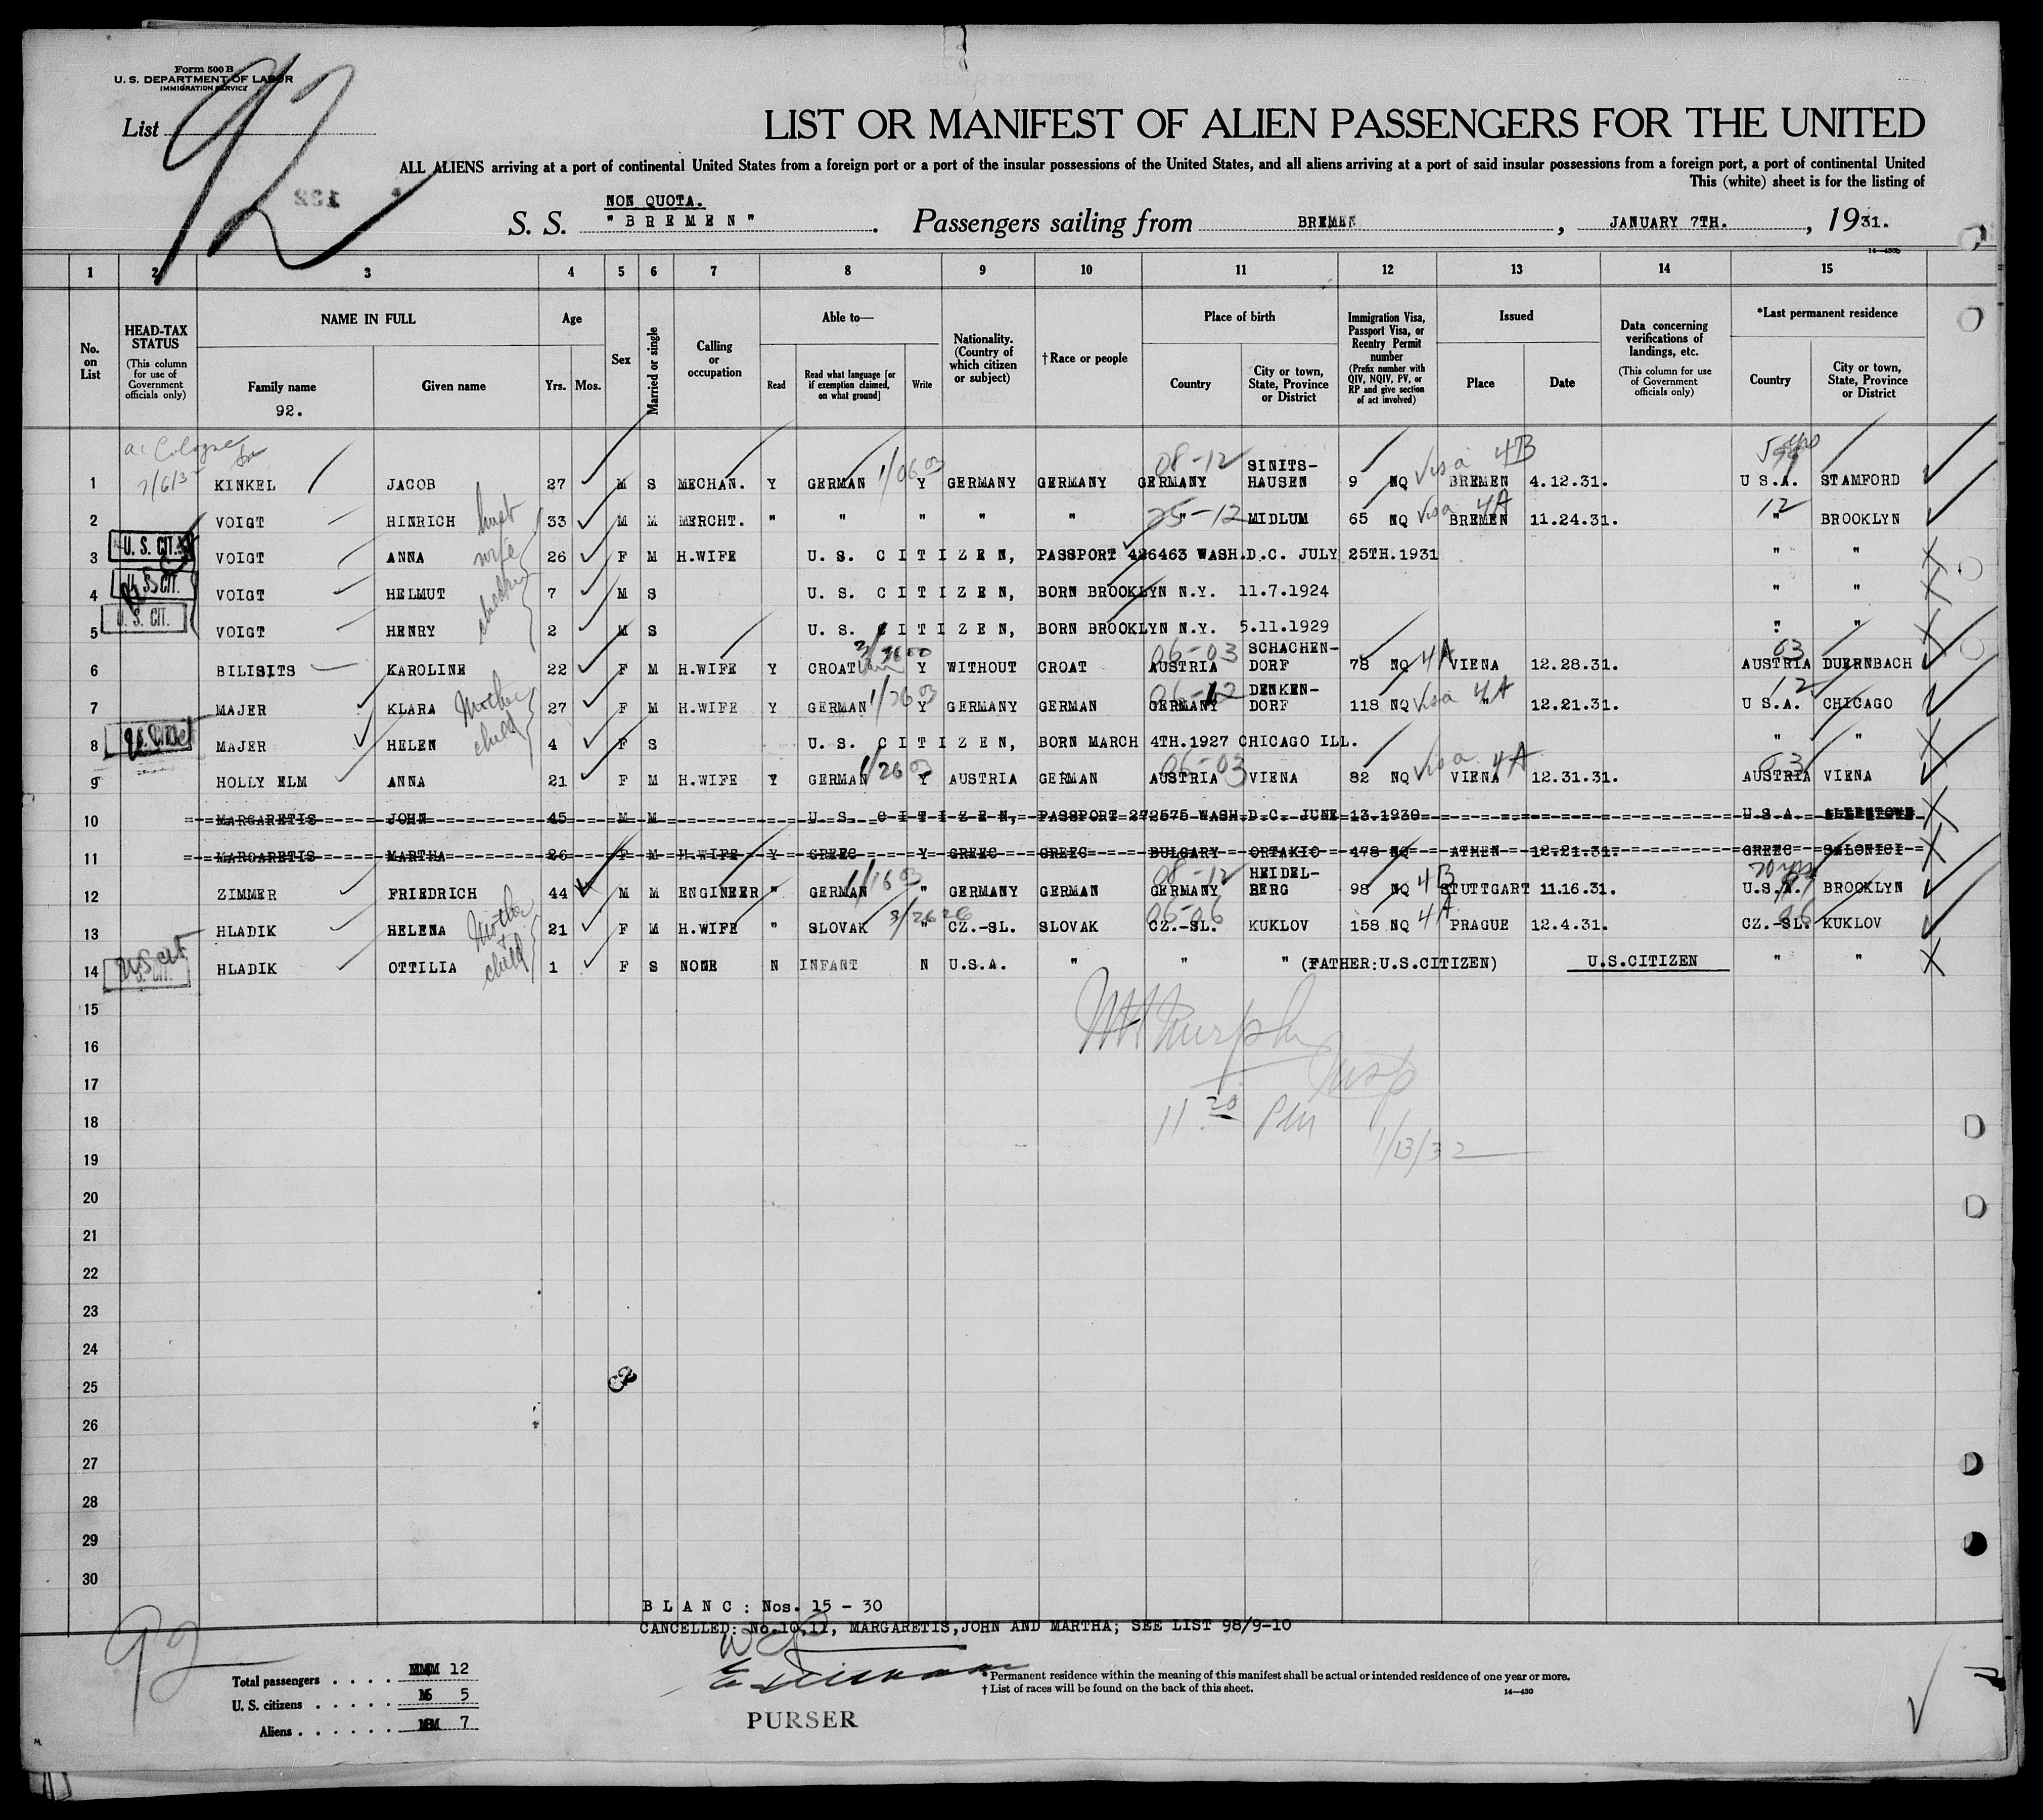 Form 500 B
U. S. DEPARTMENT OF LABOR
IMMIGRATION SERVICE
List 92
LIST OR MANIFEST OF ALIEN PASSENGERS FOR THE UNITED
ALL ALIENS arriving at a port of continental United States from a foreign port or a port of the insular possessions of the United States, and all aliens arriving at a port of said insular possessions from a foreign port, a port of continental United
This (white) sheet is for the listing of
NON QUOTA.
S. S. "BREMEN". Passengers sailing from BREMEN, JANUARY 7TH., 1931.
14—430b
1 2 3 4 5 6 7 8 9 10 11 12 13 14 15
No. on List
HEAD-TAX STATUS (This column for use of Government officials only)
NAME IN FULL
Family name
92.
Given name
Age
Yrs. Mos.
Sex
Married or single
Calling or occupation
Able to—
Read
Read what language [or if exemption claimed, on what ground]
Write
Nationality. (Country of which citizen or subject)
†Race or people
Place of birth
Country
City or town, State, Province or District
Immigration Visa, Passport Visa, or Reentry Permit number (Prefix number with QIV, NQIV, PV, or RP and give section of act involved)
Issued
Place
Date
Data concerning verifications of landings, etc. (This column for use of Government officials only)
*Last permanent residence
Country
City or town, State, Province or District
1 KINKEL JACOB 27 M S MECHAN. Y GERMAN 1/06 03 Y GERMANY GERMANY GERMANY 08-12 SINITS-HAUSEN 9 NQ Visa 4B BREMEN 4.12.31. U S.A. STAMFORD
2 VOIGT HINRICH husb 33 M M MERCHT. " " " " " " 25-12 MIDLUM 65 NQ Visa 4A BREMEN 11.24.31. " 12 BROOKLYN
3 U. S. CIT. VOIGT ANNA wife 26 F M H.WIFE U. S. CITIZEN, PASSPORT 426463 WASH.D.C. JULY 25TH.1931 " "
4 U. S. CIT. VOIGT HELMUT children 7 M S U. S. CITIZEN, BORN BROOKLYN N.Y. 11.7.1924 " "
5 U. S. CIT. VOIGT HENRY 2 M S U. S. CITIZEN, BORN BROOKLYN N.Y. 5.11.1929 " "
6 BILISITS KAROLINE 22 F M H.WIFE Y CROAT Y WITHOUT CROAT AUSTRIA 06-03 SCHACHEN-DORF 78 NQ 4A VIENA 12.28.31. AUSTRIA 03 DUERNBACH
7 MAJER KLARA Mother 27 F M H.WIFE Y GERMAN 1/26 03 Y GERMANY GERMAN GERMANY 06-12 DENKEN-DORF 118 NQ Visa 4A " 12.21.31. U S.A. 12 CHICAGO
8 MAJER HELEN child 4 F S U. S. CITIZEN, BORN MARCH 4TH.1927 CHICAGO ILL. " "
9 HOLLY ELM ANNA 21 F M H.WIFE Y GERMAN 1/26 03 Y AUSTRIA GERMAN AUSTRIA 06-03 VIENA 82 NQ Visa 4A VIENA 12.31.31. AUSTRIA 03 VIENA
10 MARGARETIS JOHN 45 M M U. S. CITIZEN, PASSPORT 272575 WASH.D.C. JUNE 13.1930 U.S.A.
11 MARGARETIS MARTHA 26 F M H.WIFE Y GREEC Y GREEC GREEC BULGARY ORTAKIO 478 NQ ATHEN 12.21.31. GREEC SALONICI
12 ZIMMER FRIEDRICH 44 M M ENGINEER " GERMAN 1/16 03 " GERMANY GERMAN GERMANY 08-12 HEIDEL-BERG 98 NQ 4B STUTTGART 11.16.31. U.S.A. BROOKLYN
13 HLADIK HELENA Mother 21 F M H.WIFE " SLOVAK 3/26 26 " CZ.-SL. SLOVAK CZ.-SL. 06-06 KUKLOV 158 NQ 4A PRAGUE 12.4.31. CZ.-SL. KUKLOV
14 US cit HLADIK OTTILIA child 1 F S NONE N INFANT N U.S.A. " " " (FATHER:U.S.CITIZEN) U.S.CITIZEN " "
15
16
17
18
19
20
21
22
23
24
25
26
27
28
29
30
Murphy
Insp
11 20 PM
1/13/32
BLANC: Nos. 15 - 30
CANCELLED: No.10,11, MARGARETIS,JOHN AND MARTHA; SEE LIST 98/9-10
92
Total passengers . . . . 12
U. S. citizens . . . . . 5
Aliens . . . . . . 7
PURSER
* Permanent residence within the meaning of this manifest shall be actual or intended residence of one year or more.
† List of races will be found on the back of this sheet.
14—430